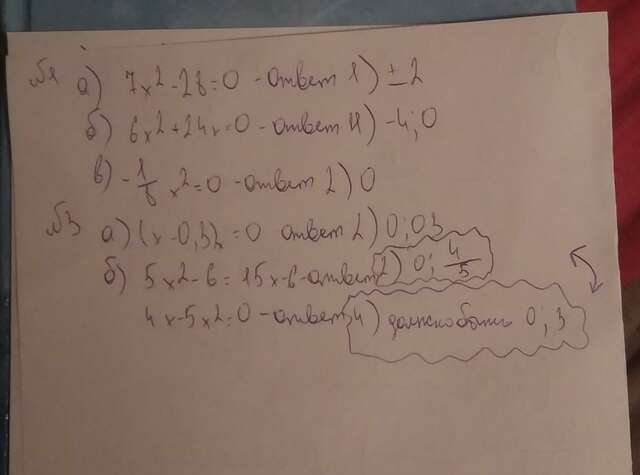 №1 а) 7x2-28=0 - ответ 1) ±2
б) 6x2+24x=0 - ответ 4) -4; 0
в) -1/6 x2=0 - ответ 2) 0
№3 а) (x-0,3)x=0 ответ 2) 0; 0,3
б) 5x2-6=15x-6 - ответ 2) 0; 4/5
4x-5x2=0 - ответ 4) должно быть 0; 3